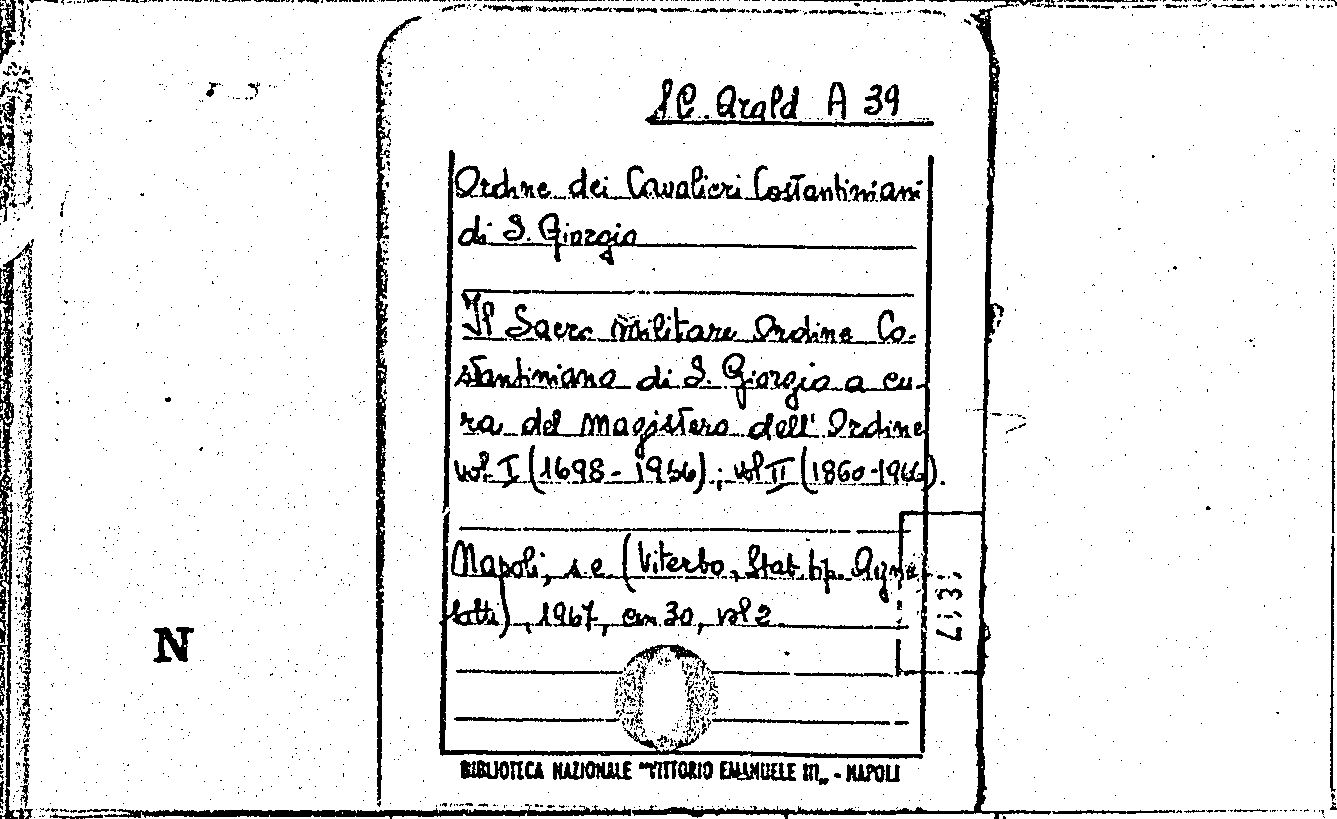 SC. Arald A 39
Ordine dei Cavalieri Costantiniani
di S. Giorgio
Il Sacro Militare Ordine Co-
stantiniano di S. Giorgio a cu-
ra del Magistero dell'Ordine
vol. I (1698 - 1956); vol II (1860-1966).
Napoli, s.e. (Viterbo, Stab. tip. Agne-
sotti), 1967, cm 30, vol 2
N
BIBLIOTECA NAZIONALE "VITTORIO EMANUELE III„ - NAPOLI